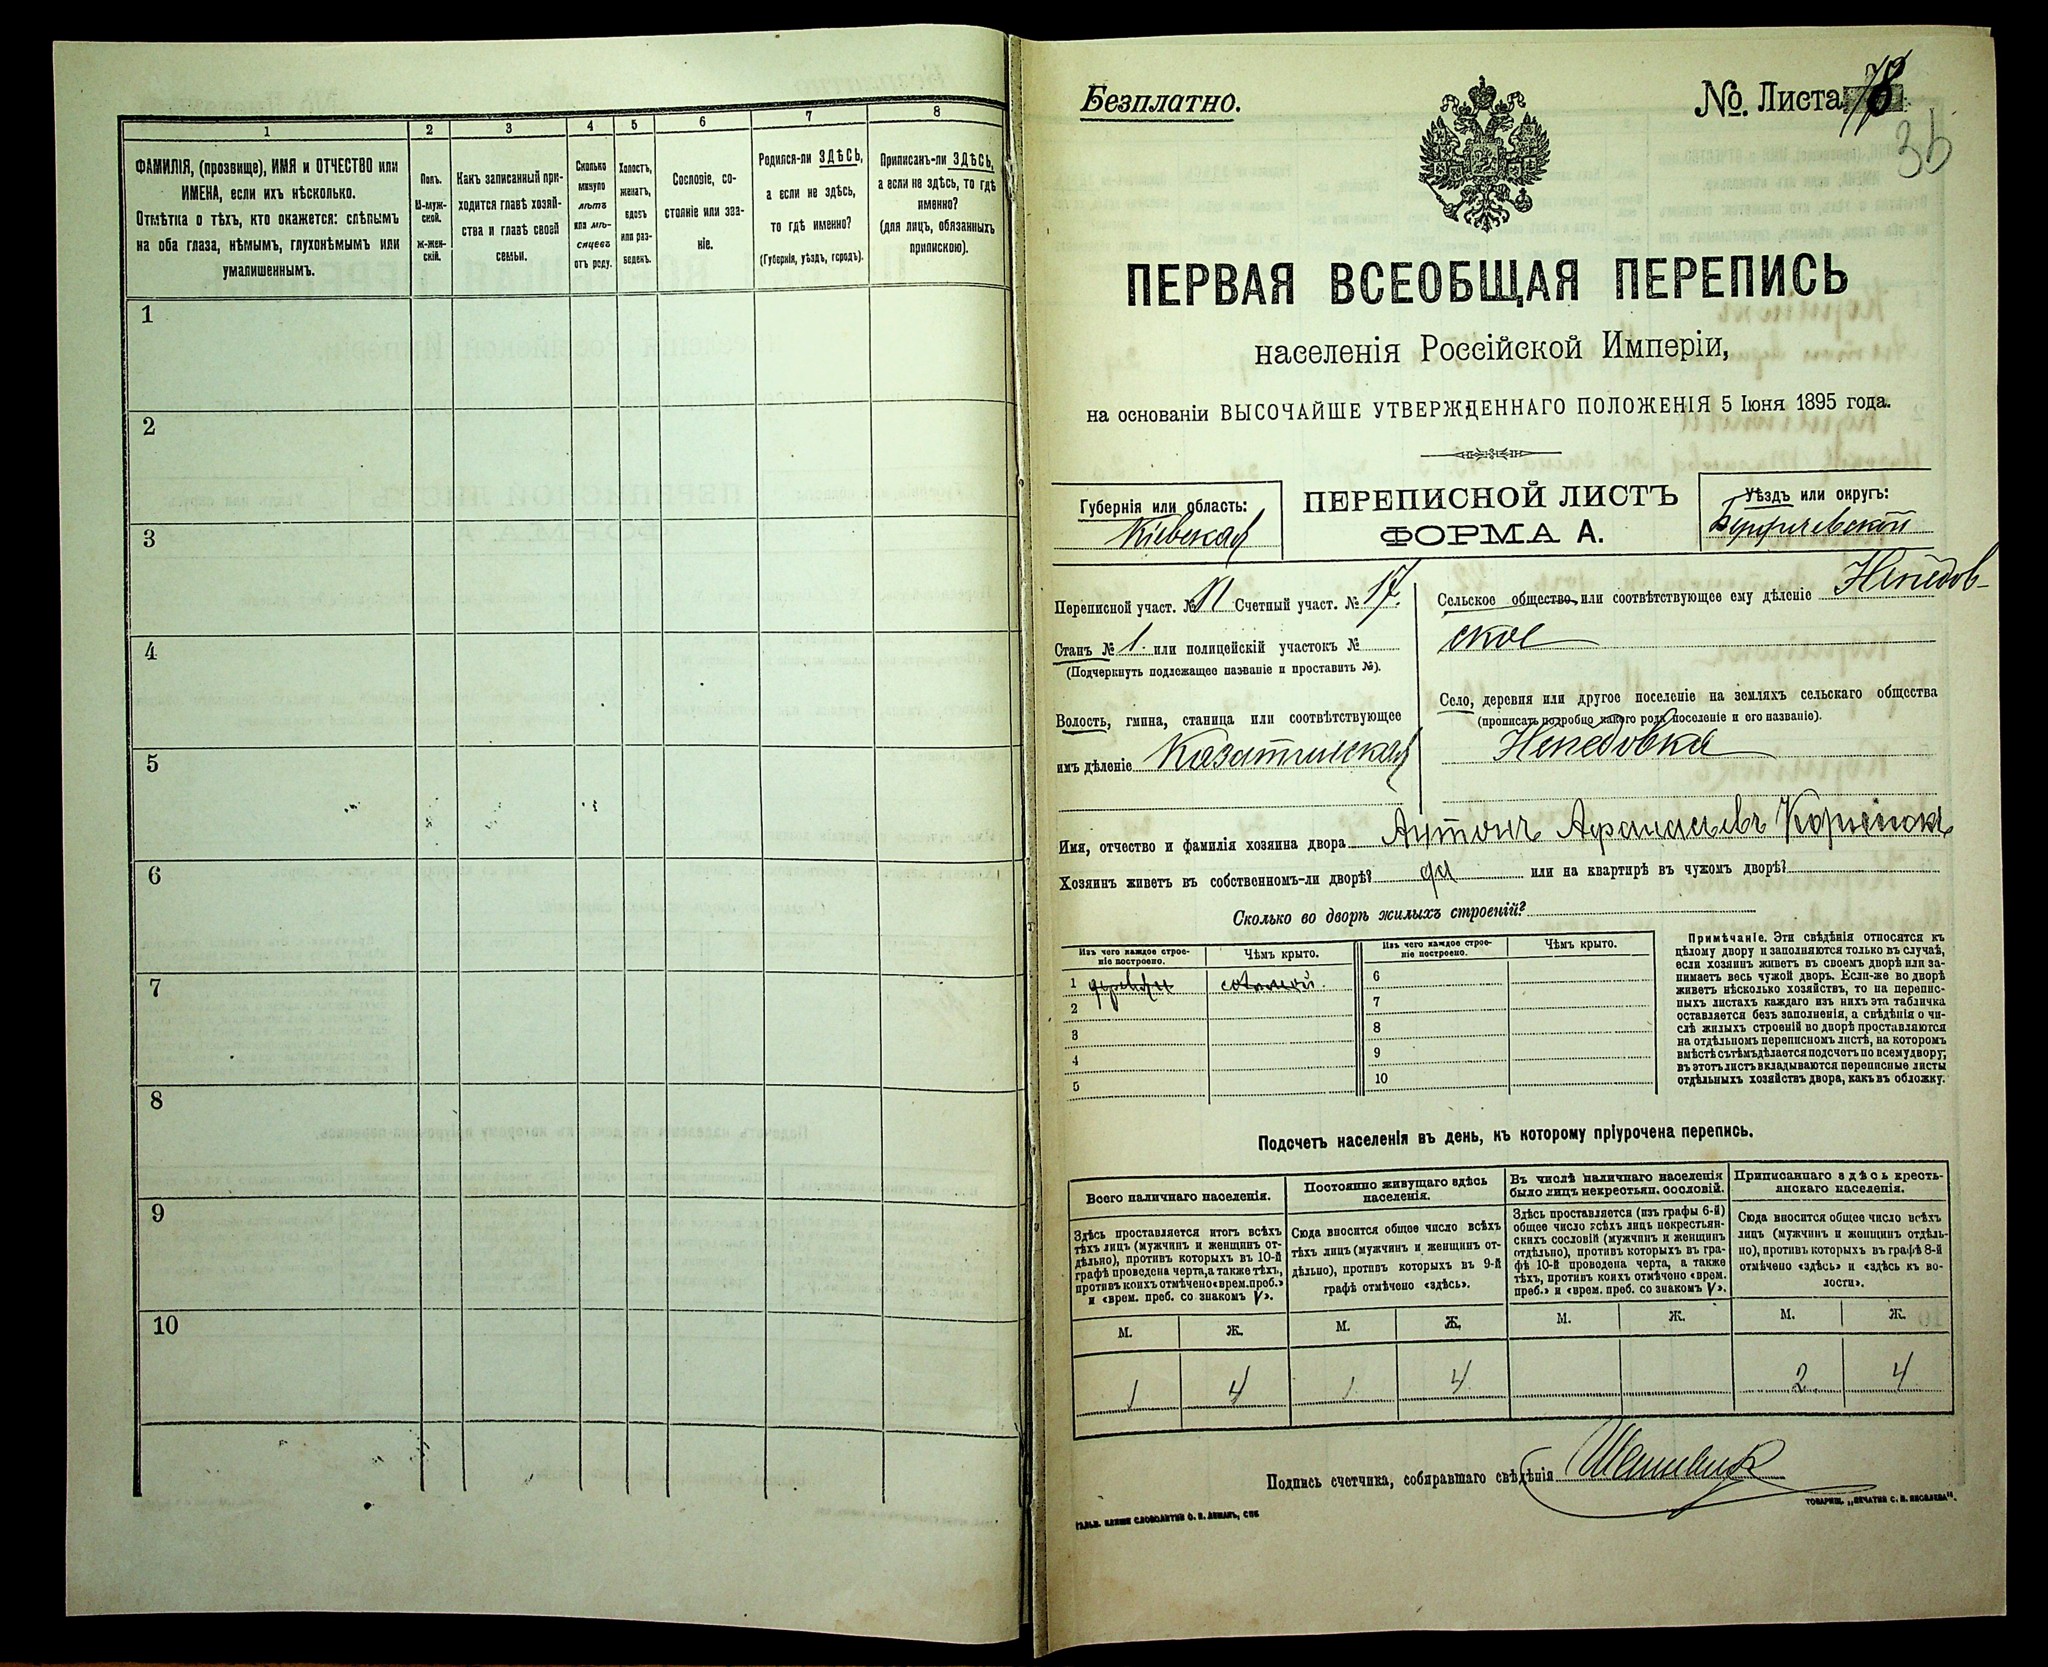 1
2
3
4
5
6
7
8
ФАМИЛІЯ, (прозвище), ИМЯ и ОТЧЕСТВО или
ИМЕНА, если ихъ нѣсколько.
Отмѣтка о тѣхъ, кто окажется: слѣпымъ
на оба глаза, нѣмымъ, глухонѣмымъ или
умалишеннымъ.
Полъ.
М-муж-
ской.
ж-жен-
скій.
Какъ записанный при-
ходится главѣ хозяй-
ства и главѣ своей
семьи.
Сколько
минуло
лѣтъ
или мѣ-
сяцевъ
отъ роду.
Холостъ,
женатъ,
вдовъ
или раз-
веденъ.
Сословіе, со-
стояніе или зва-
ніе.
Родился-ли ЗДѢСЬ,
а если не здѣсь,
то гдѣ именно?
(Губернія, уѣздъ, городъ).
Приписанъ-ли ЗДѢСЬ,
а если не здѣсь, то гдѣ
именно?
(для лицъ, обязанныхъ
припискою).
1
2
3
4
5
6
7
8
9
10
Безплатно.
№. Листа 78
36
ПЕРВАЯ ВСЕОБЩАЯ ПЕРЕПИСЬ
населенія Россійской Имперіи,
на основаніи ВЫСОЧАЙШЕ УТВЕРЖДЕННАГО ПОЛОЖЕНІЯ 5 Іюня 1895 года.
Губернія или область:
Кіевская
ПЕРЕПИСНОЙ ЛИСТЪ
ФОРМА А.
Уѣздъ или округъ:
Бердичевскій
Переписной участ. № Счетный участ. № 17.
Станъ № 1. или полицейскій участокъ №
(Подчеркнуть подлежащее названіе и проставить №).
Волость, гмина, станица или соотвѣтствующее
имъ дѣленіе Казатинская
Сельское общество, или соотвѣтствующее ему дѣленіе Непедов-
ское
Село, деревня или другое поселеніе на земляхъ сельскаго общества
(прописать подробно какого рода поселеніе и его названіе).
Непедовка
Имя, отчество и фамилія хозяина двора Антонъ Афанасьевъ
Хозяинъ живетъ въ собственномъ-ли дворѣ? да или на квартирѣ въ чужомъ дворѣ?
Сколько во дворѣ жилыхъ строеній?
Изъ чего каждое строе-
ніе построено.
Чѣмъ крыто.
Изъ чего каждое строе-
ніе построено.
Чѣмъ крыто.
1 дерева соломой.
2
3
4
5
6
7
8
9
10
Примѣчаніе. Эти свѣдѣнія относятся къ
цѣлому двору и заполняются только въ случаѣ,
если хозяинъ живетъ въ своемъ дворѣ или за-
нимаетъ весь чужой дворъ. Если-же во дворѣ
живетъ нѣсколько хозяйствъ, то на перепис-
ныхъ листахъ каждаго изъ нихъ эта табличка
оставляется безъ заполненія, а свѣдѣнія о чи-
слѣ жилыхъ строеній во дворѣ проставляются
на отдѣльномъ переписномъ листѣ, на которомъ
вмѣстѣ съ тѣмъ дѣлается подсчетъ по всему двору;
въ этотъ листъ вкладываются переписные листы
отдѣльныхъ хозяйствъ двора, какъ въ обложку.
Подсчетъ населенія въ день, къ которому пріурочена перепись.
Всего наличнаго населенія.
Здѣсь проставляется итогъ всѣхъ
тѣхъ лицъ (мужчинъ и женщинъ от-
дѣльно), противъ которыхъ въ 10-й
графѣ проведена черта, а также тѣхъ,
противъ коихъ отмѣчено «врем. проб.»
и «врем. преб. со знакомъ V».
Постоянно живущаго здѣсь
населенія.
Сюда вносится общее число всѣхъ
тѣхъ лицъ (мужчинъ и женщинъ от-
дѣльно), противъ которыхъ въ 9-й
графѣ отмѣчено «здѣсь».
Въ числѣ наличнаго населенія
было лицъ некрестьян. сословій.
Здѣсь проставляется (изъ графы 6-й)
общее число всѣхъ лицъ некрестьян-
скихъ сословій (мужчинъ и женщинъ
отдѣльно), противъ которыхъ въ гра-
фѣ 10-й проведена черта, а также
тѣхъ, противъ коихъ отмѣчено «врем.
преб.» и «врем. преб. со знакомъ V».
Приписаннаго здѣсь кресть-
янскаго населенія.
Сюда вносится общее число всѣхъ
лицъ (мужчинъ и женщинъ отдѣль-
но), противъ которыхъ въ графѣ 8-й
отмѣчено «здѣсь» и «здѣсь къ во-
лости».
М. Ж. М. Ж. М. Ж. М. Ж.
1 4 1 4 2 4
Подпись счетчика, собиравшаго свѣдѣнія
ГАЛЬВ. КЛИШЕ СЛОВОЛИТНИ О. И. ЛЕМАНЪ, СПБ
ТОВАРИЩ. „ПЕЧАТНЯ С. П. ЯКОВЛЕВА“.